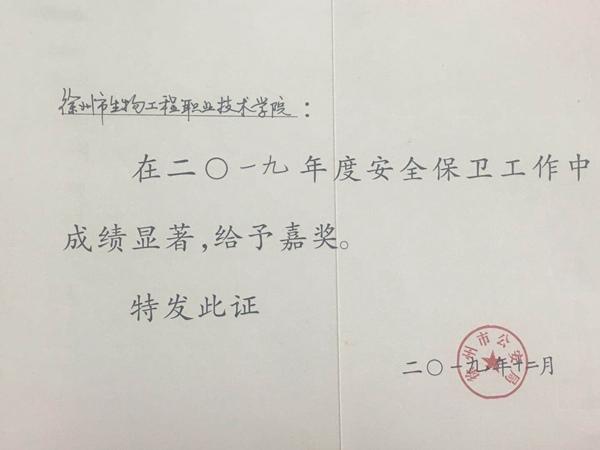 徐州市生物工程职业技术学院：
在二〇一九年度安全保卫工作中
成绩显著，给予嘉奖。
特发此证
徐州市公安局
二〇一九年十二月